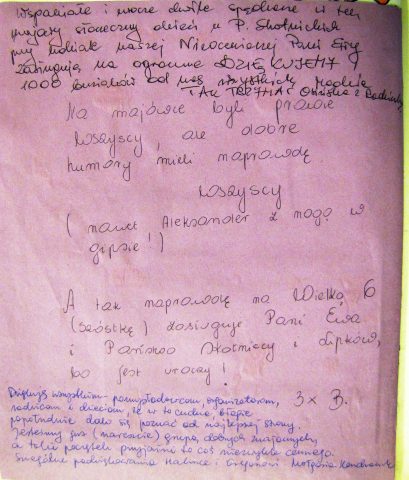 Wspaniałe i mocne chwile spędzone w ten
majowy słoneczny dzień u P. Skotnickich
przy udziale naszej Nieocenionej Pani Ewy
zasługują na ogromne DZIĘKUJEMY
1000 buziaków od nas wszystkich
TAK TRZYMAĆ z Rodziną
Na majówce byli prawie
wszyscy, ale dobre
humory mieli naprawdę
wszyscy
(nawet Aleksander z nogą w
gipsie!)
A tak naprawdę na Wielką 6
(szóstkę) zasługuje Pani Ewa
i Państwo Skotniccy i dipków,
bo jest uroczy!
3 x B.
Dziękuję wszystkim pomysłodawcom, organizatorom,
rodzicom i dzieciom, że w to cudne, błogie
popołudnie dało się poznać od najlepszej strony.
Jesteśmy już (narescie) grupą dobrych znajomych,
a takie początek przyjaźni to coś niezwykle cennego.
Szczególne podziękowania Halince i Małgosia